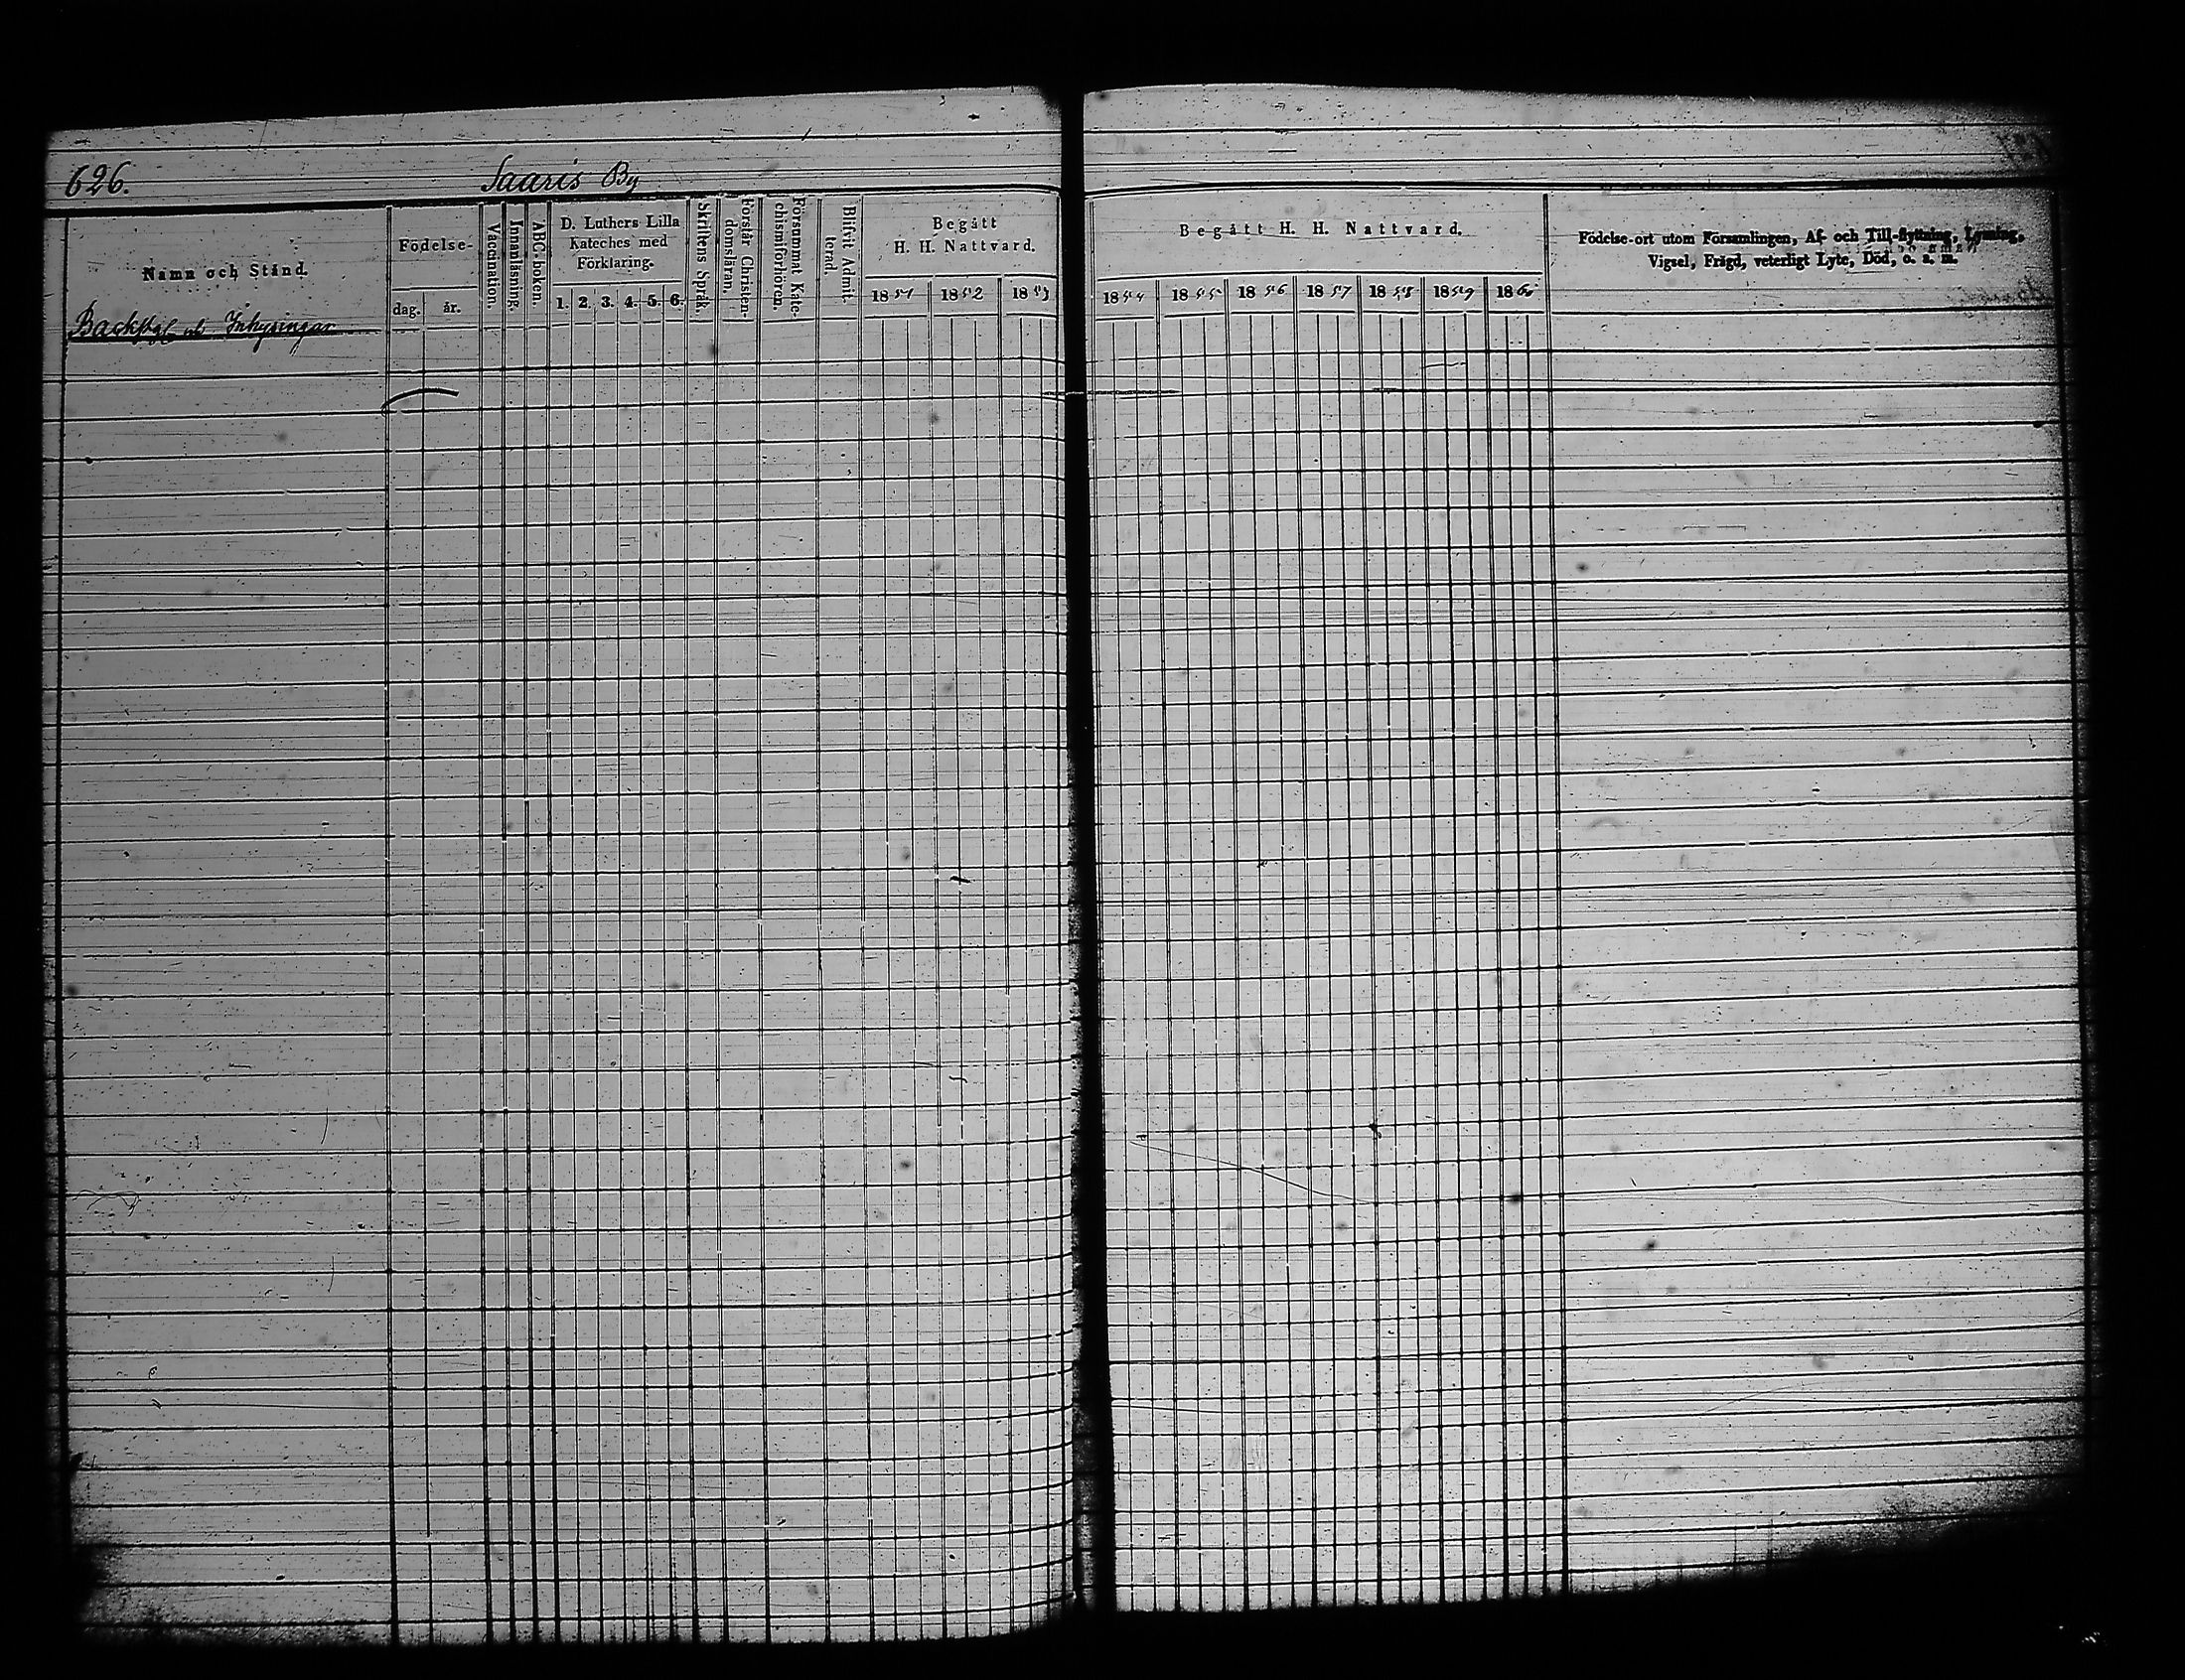 626.
Saaris By
Namn och Stånd.
Födelse-
dag.
år.
Vaccination.
Innanläsning.
ABC-boken.
D. Luthers Lilla
Kateches med
Förklaring.
1. 2. 3. 4. 5. 6.
Skriftens Språk.
Förstår Christen-
domsläran.
Försummat Kate-
chismiförhören.
Blifvit Admit-
terad.
Begått
H. H. Nattvard.
1851 1852 1853
Begått H. H. Nattvard.
1854 1855 1856 1857 1858 1859 1860
Födelse-ort utom Församlingen, Af- och Till-flyttning, Lysning,
Vigsel, Frägd, veterligt Lyte, Död, o. s. m.
Inhysingar